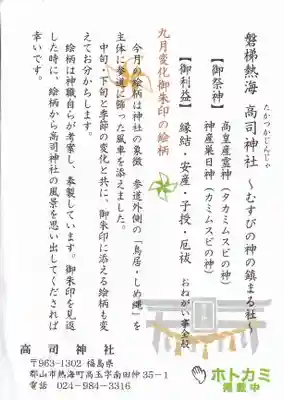 磐梯熱海 高司神社 ～むすびの神の鎮まる社～
たかつかじんじゃ
【御祭神】 高皇産霊神（タカミムスビの神）
神産巣日神（カミムスビの神）
【御利益】 縁結・安産・子授・厄祓 おねがい事全般
九月変化御朱印の絵柄
今月の絵柄は神社の象徴 参道外側の「鳥居・しめ縄」を
主体に参道に飾った風車を添えました。
中旬、下旬と季節の変化と共に、御朱印に添える絵柄も変
えてお分かちします。
絵柄は神職自らが考案し、奉製しています。御朱印を見返
した時に、絵柄から高司神社の風景を思い出してくだされば
幸いです。
高司神社
〒963-1302 福島県
郡山市熱海町高玉字南田仲35-1
電話 024-984-3316
ホトカミ
掲載中